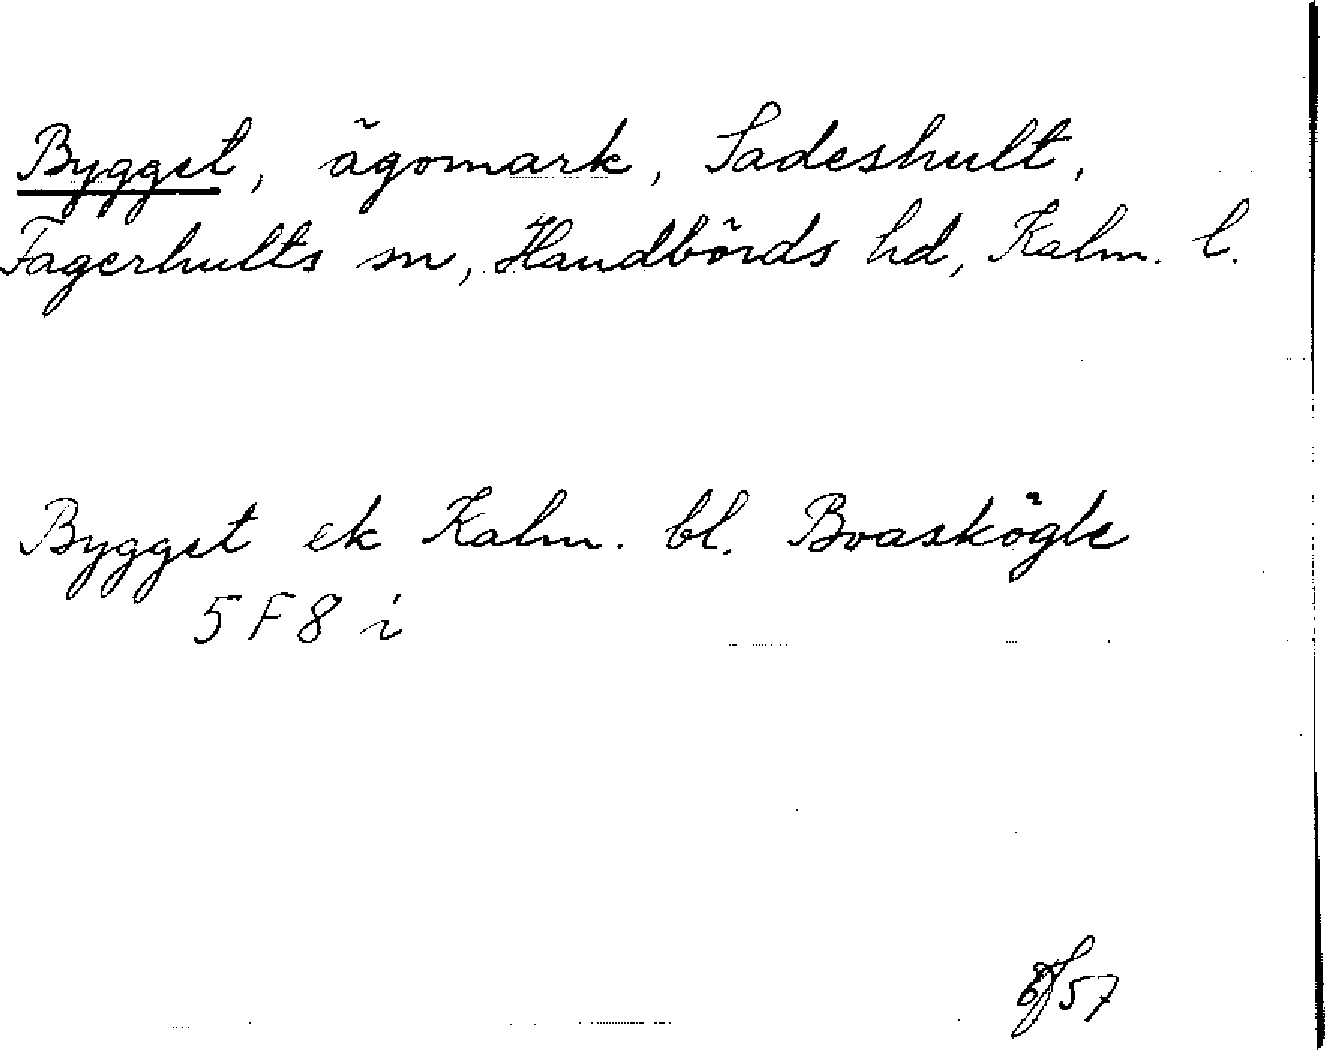 Bygget, ägomark, Sadeshult,
Fagerhults sn, Handbörds hd, Kalm. l.
Bygget ek Kalm. bl. Boaskögle
5 F 8 i
57